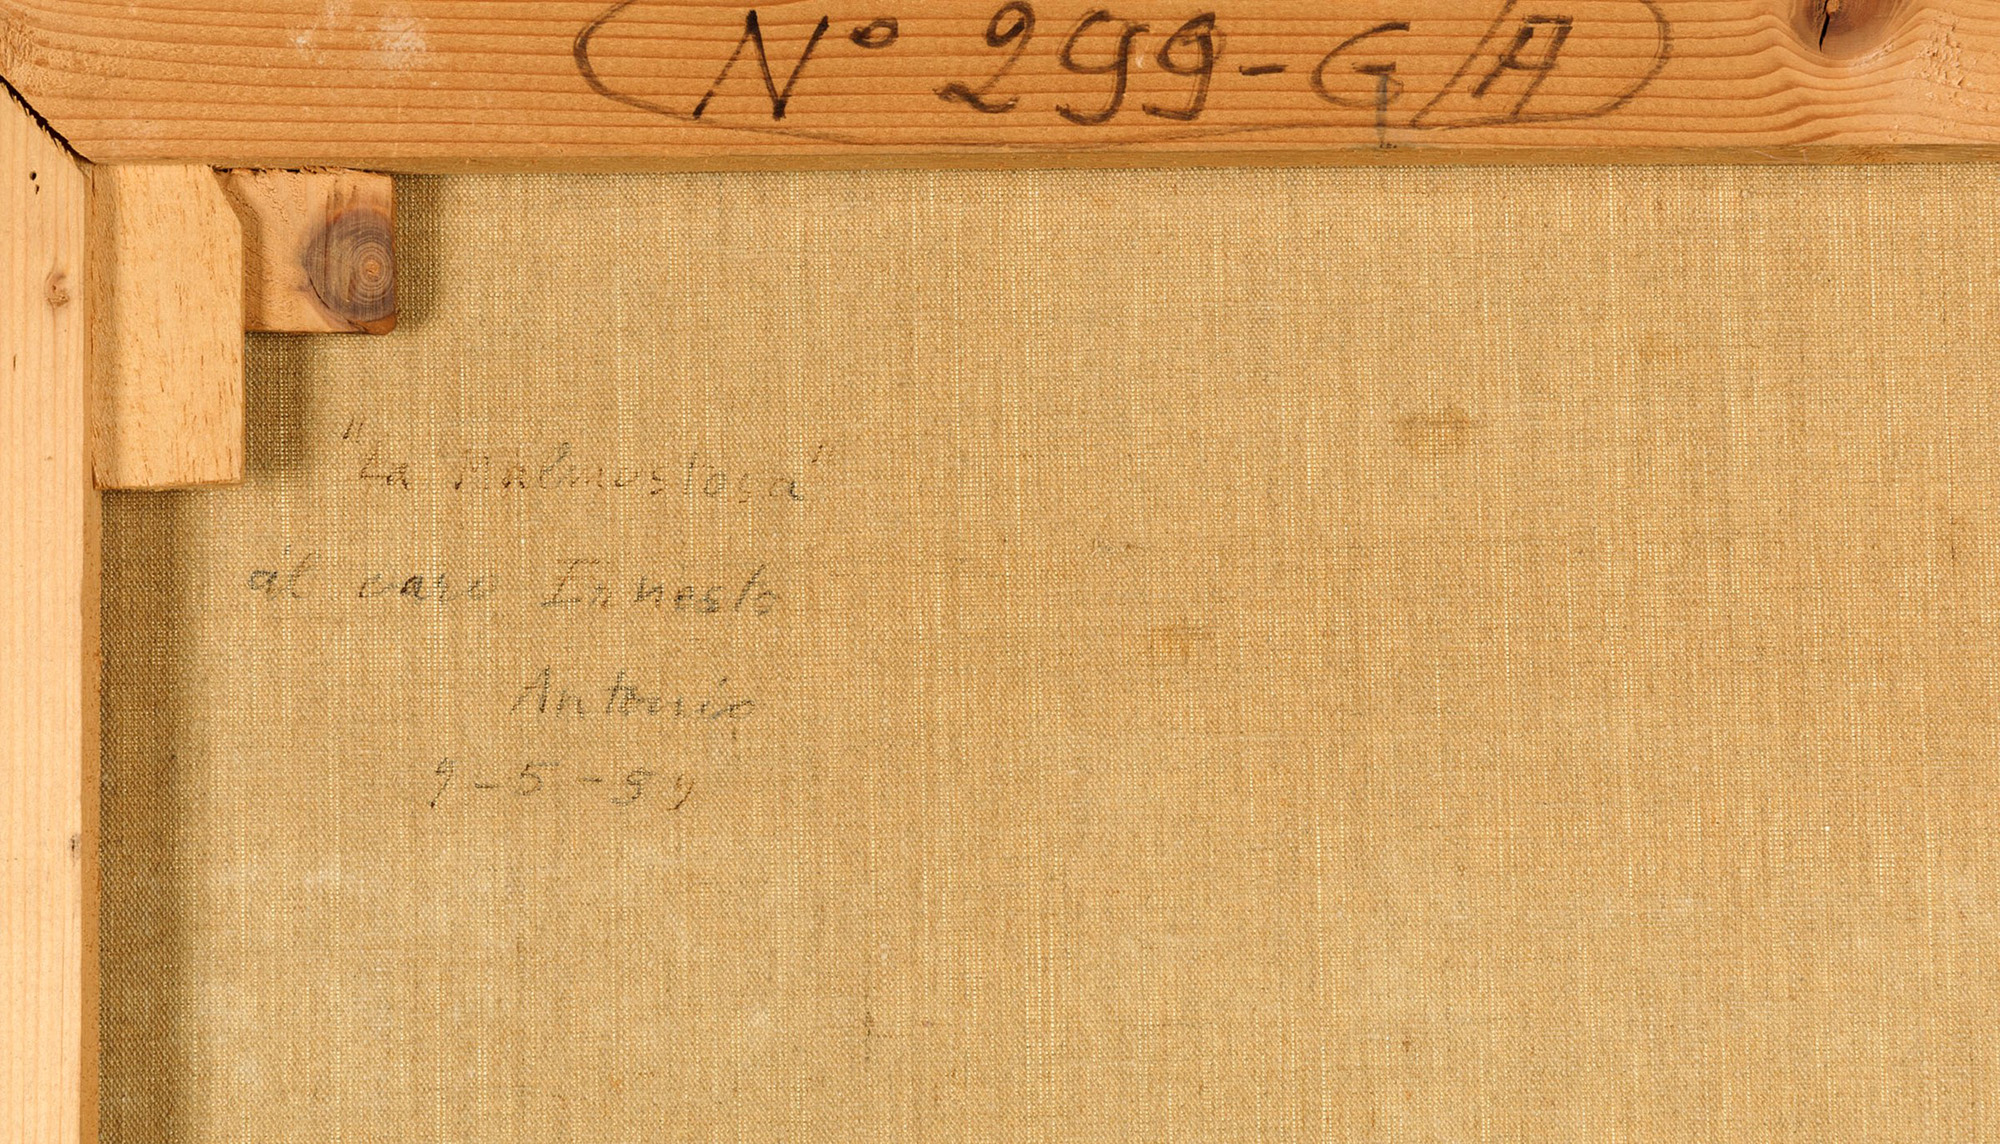 N° 299-G/A
"La Malmostosa"
al caro Ernesto
Antonio
9-5-59